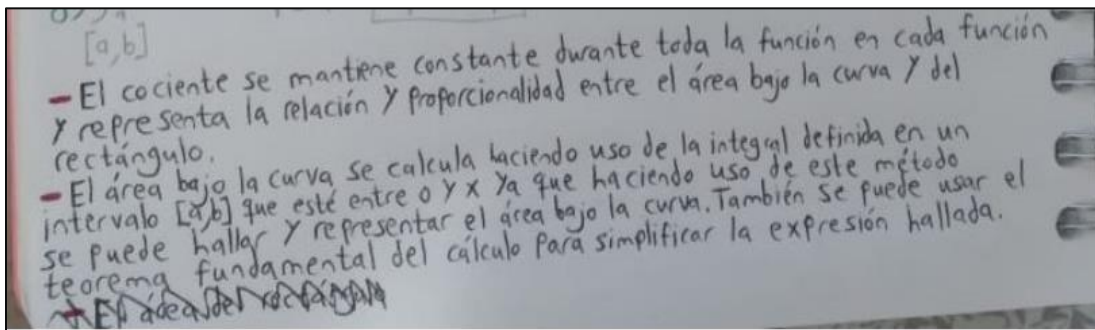 [a,b]
- El cociente se mantiene constante durante toda la función en cada función
y representa la relación y proporcionalidad entre el área bajo la curva y del
rectángulo.
- El área bajo la curva se calcula haciendo uso de la integral definida en un
intervalo [a,b] que esté entre 0 y x ya que haciendo uso de este método
se puede hallar y representar el área bajo la curva. También se puede usar el
teorema fundamental del cálculo para simplificar la expresión hallada.